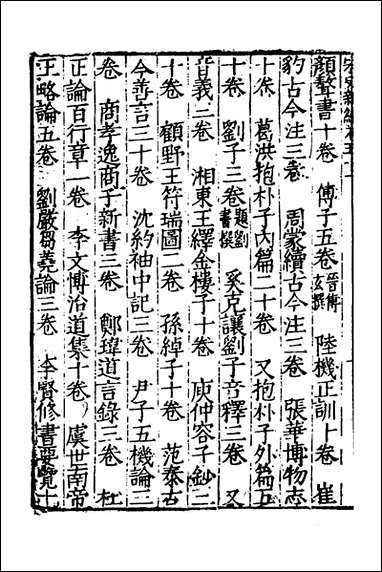 顔鏊書十卷 傅子五卷晉傅玄撰 陸機正訓十卷 崔
豹古今注三卷 周蒙續古今注三卷 張華博物志
十卷 葛洪抱朴子內篇二十卷 又抱朴子外篇五
十卷 劉子三卷題劉書撰 奚克讓劉子音釋三卷 又
音義三卷 湘東王繹金樓子十卷 庾仲容子鈔三
十卷 顧野王符瑞圖二卷 孫綽子十卷 范泰古
今善言三十卷 沈約袖中記三卷 尹子五機論三
卷 商孝逸商子新書三卷 鄭瑋道言錄三卷 杜
正論百行章一卷 李文博治道集十卷 虞世南帝
王略論五卷 劉嚴芻蕘論三卷 李賢修書要覽十